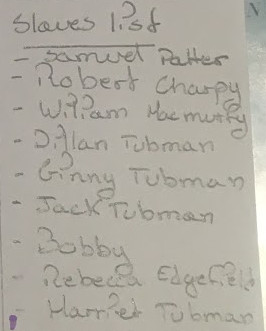 Slaves list
- Samuel Patter
- Robert Charpy
- William Macmurfy
- Dillan Tubman
- Ginny Tubman
- Jack Tubman
- Bobby
- Rebecca Edgefield
- Harriet Tubman